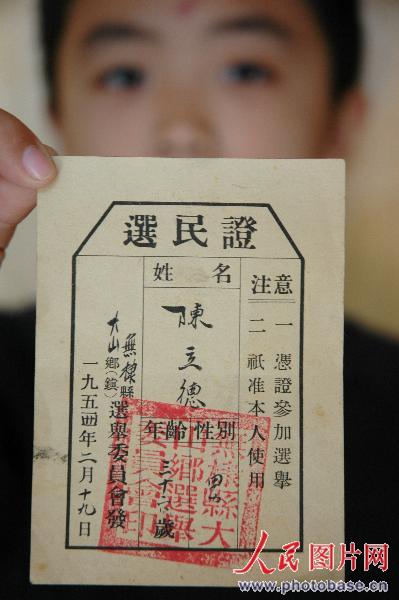 選民證
注意
一 憑證參加選舉
二 祇准本人使用
姓名
陳立德
性別
男
年齡
三十六歲
無棣縣
大山鄉(鎮)選舉委員會發
一九五四年二月十九日
無棣縣大
山鄉選舉
委員會印
人民图片网
www.photobase.cn